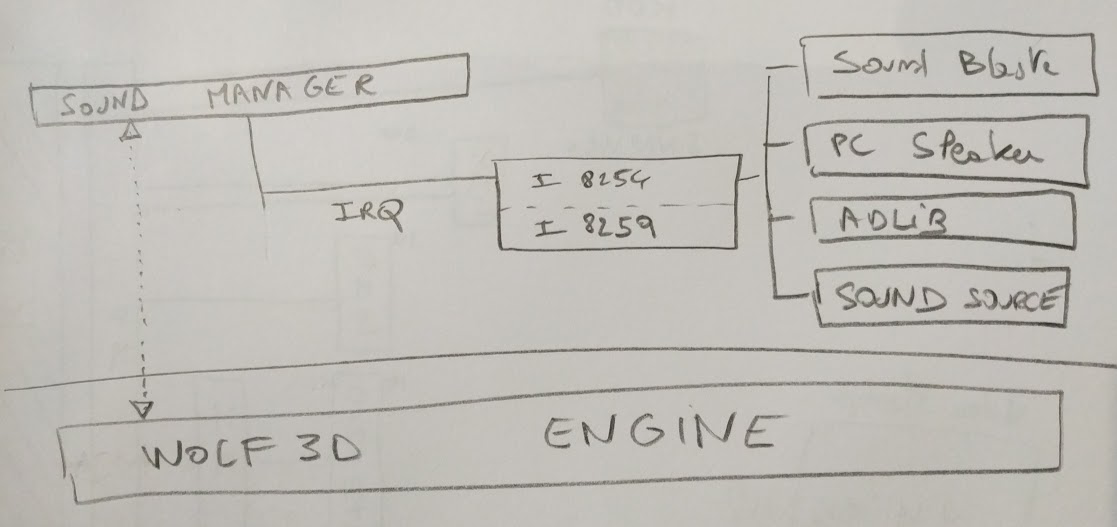 SOUND MANAGER
IRQ
I 8254
I 8259
Sound Blaster
PC Speaker
ADLIB
SOUND SOURCE
WOLF 3D ENGINE